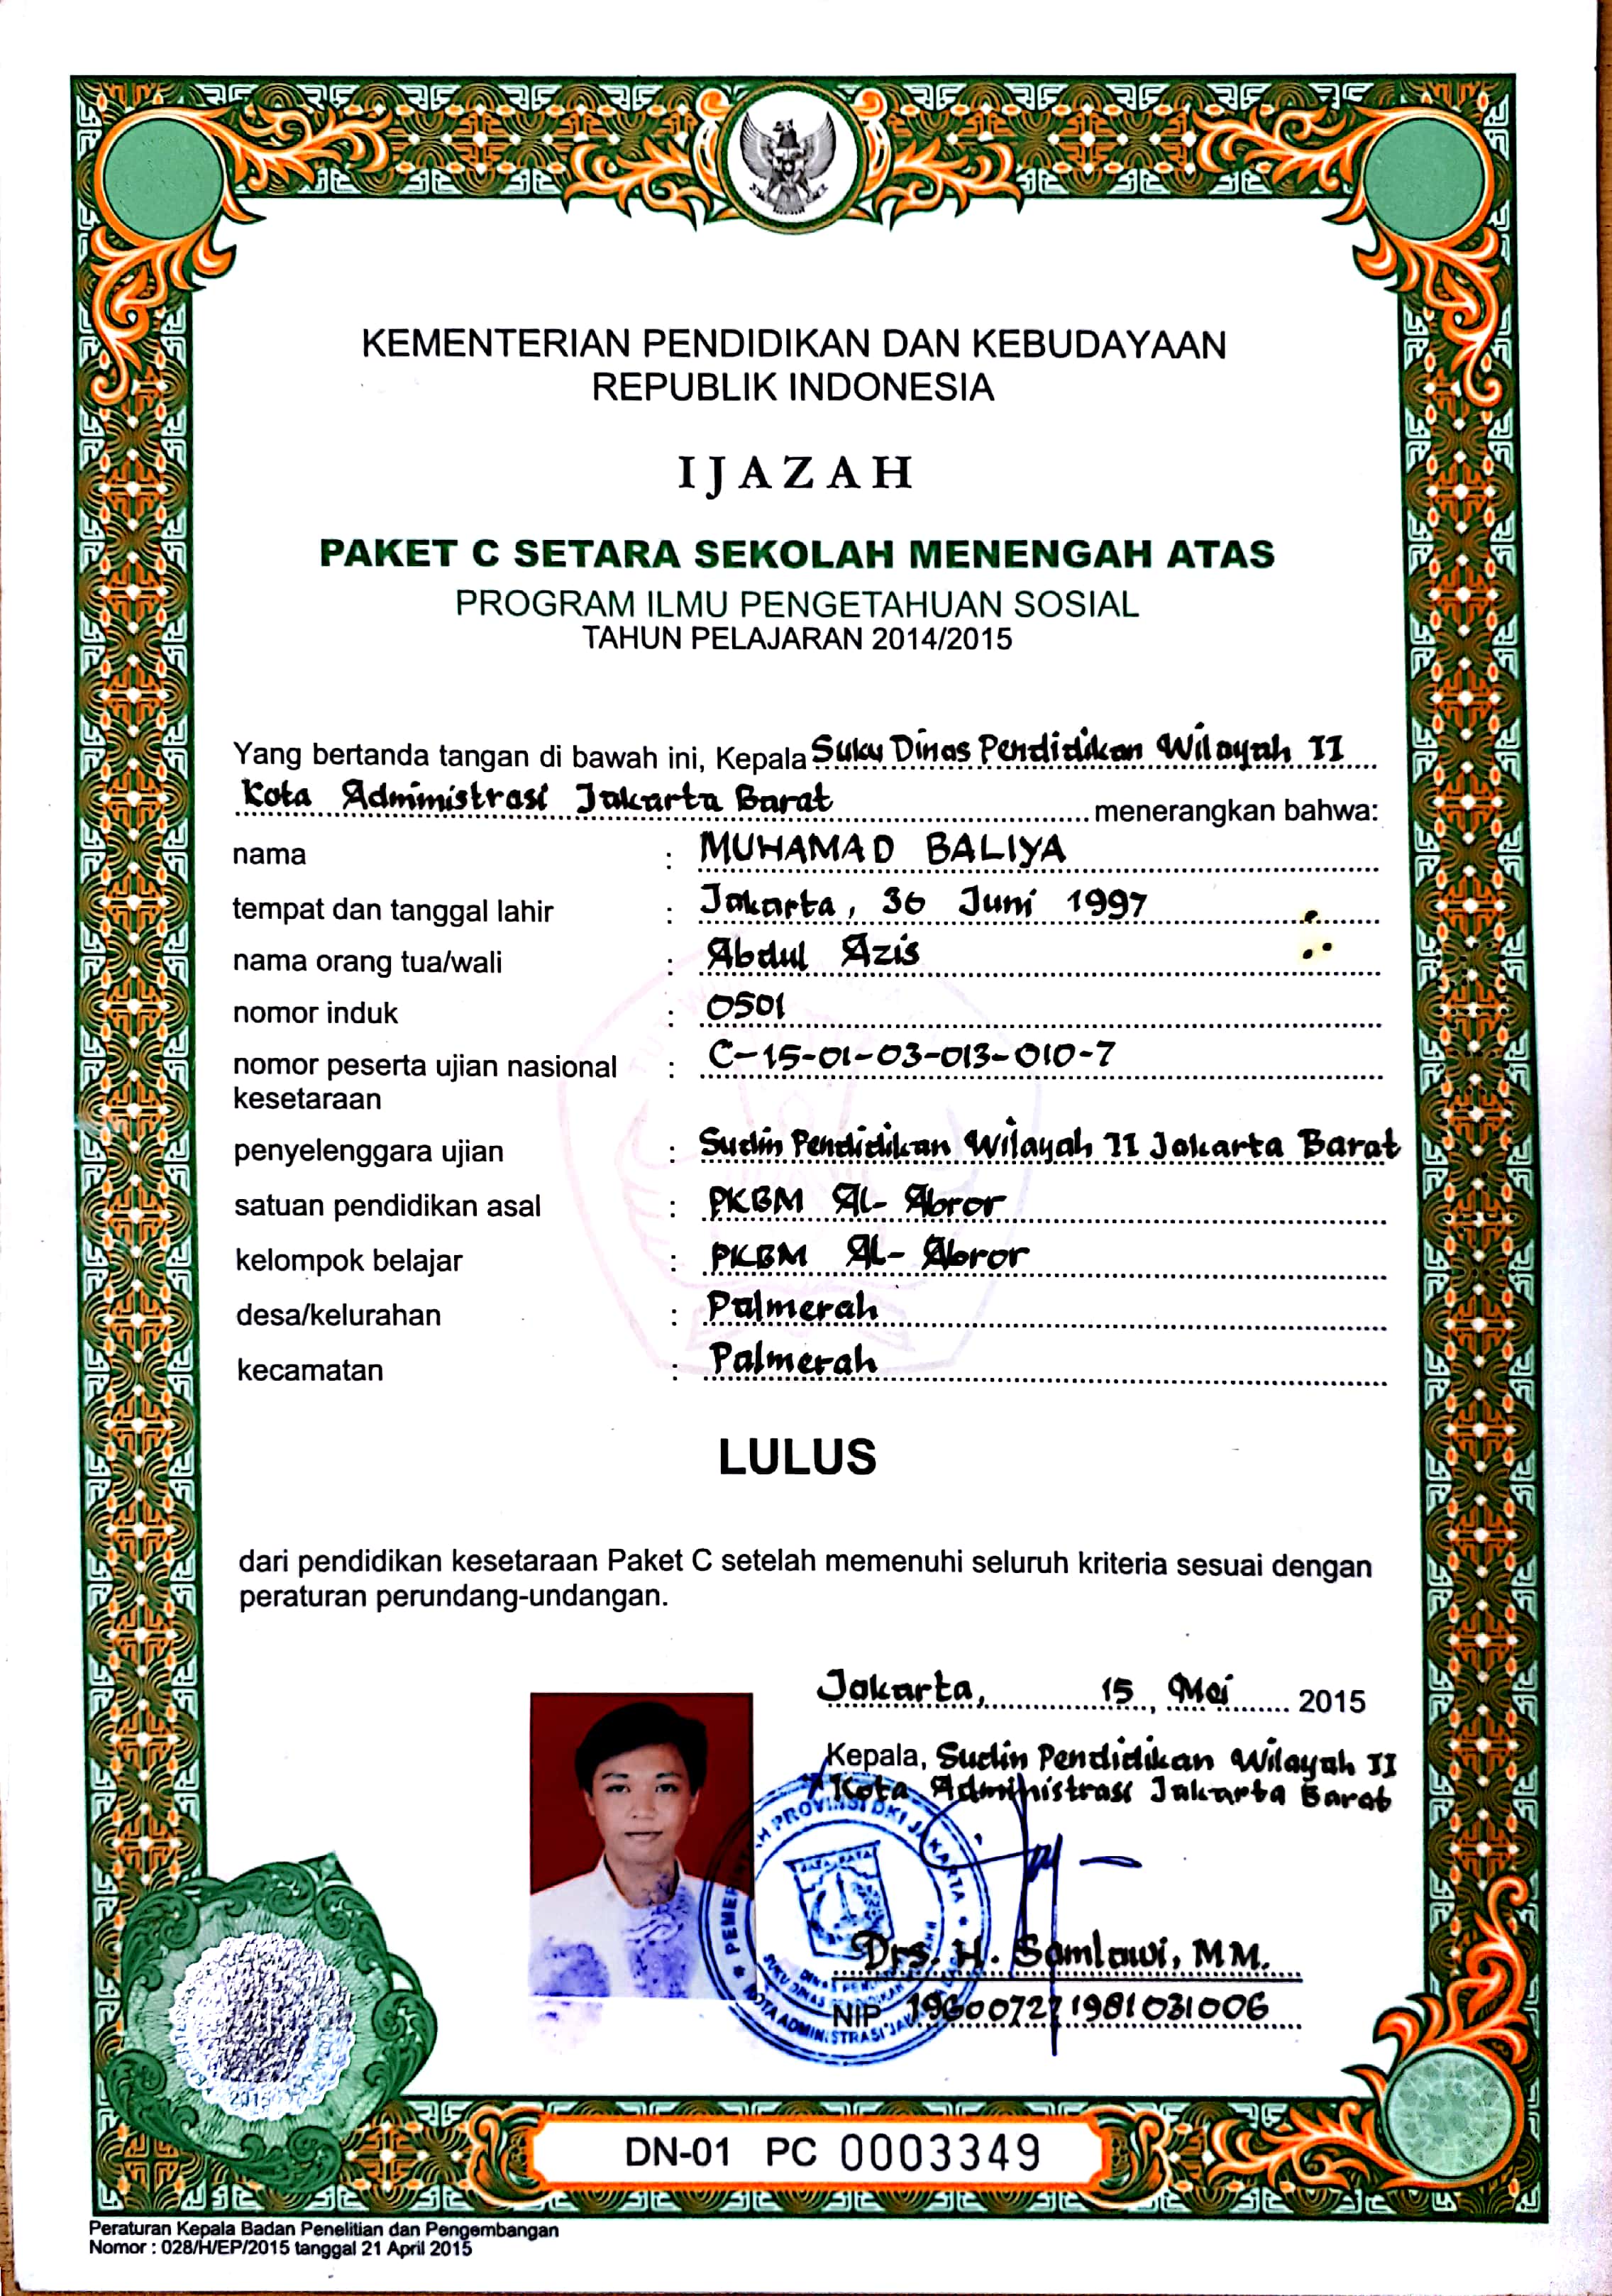 KEMENTERIAN PENDIDIKAN DAN KEBUDAYAAN
REPUBLIK INDONESIA
IJAZAH
PAKET C SETARA SEKOLAH MENENGAH ATAS
PROGRAM ILMU PENGETAHUAN SOSIAL
TAHUN PELAJARAN 2014/2015
Yang bertanda tangan di bawah ini, Kepala Suku Dinas Pendidikan Wilayah II
Kota Administrasi Jakarta Barat menerangkan bahwa:
nama : MUHAMAD BALIYA
tempat dan tanggal lahir : Jakarta, 36 Juni 1997
nama orang tua/wali : Abdul Azis
nomor induk : 0501
nomor peserta ujian nasional : C-15-01-03-013-010-7
kesetaraan
penyelenggara ujian : Sudin Pendidikan Wilayah II Jakarta Barat
satuan pendidikan asal : PKBM Al-Abror
kelompok belajar : PKBM Al-Abror
desa/kelurahan : Palmerah
kecamatan : Palmerah
LULUS
dari pendidikan kesetaraan Paket C setelah memenuhi seluruh kriteria sesuai dengan
peraturan perundang-undangan.
Jakarta, 15, Mei 2015
Kepala, Sudin Pendidikan Wilayah II
Kota Administrasi Jakarta Barat
PROVINSI DKI JAKARTA
JAYA RAYA
Drs. H. Samlawi, MM.
NIP 196007271981031006
KOTA ADMINISTRASI
DN-01 PC 0003349
Peraturan Kepala Badan Penelitian dan Pengembangan
Nomor : 028/H/EP/2015 tanggal 21 April 2015